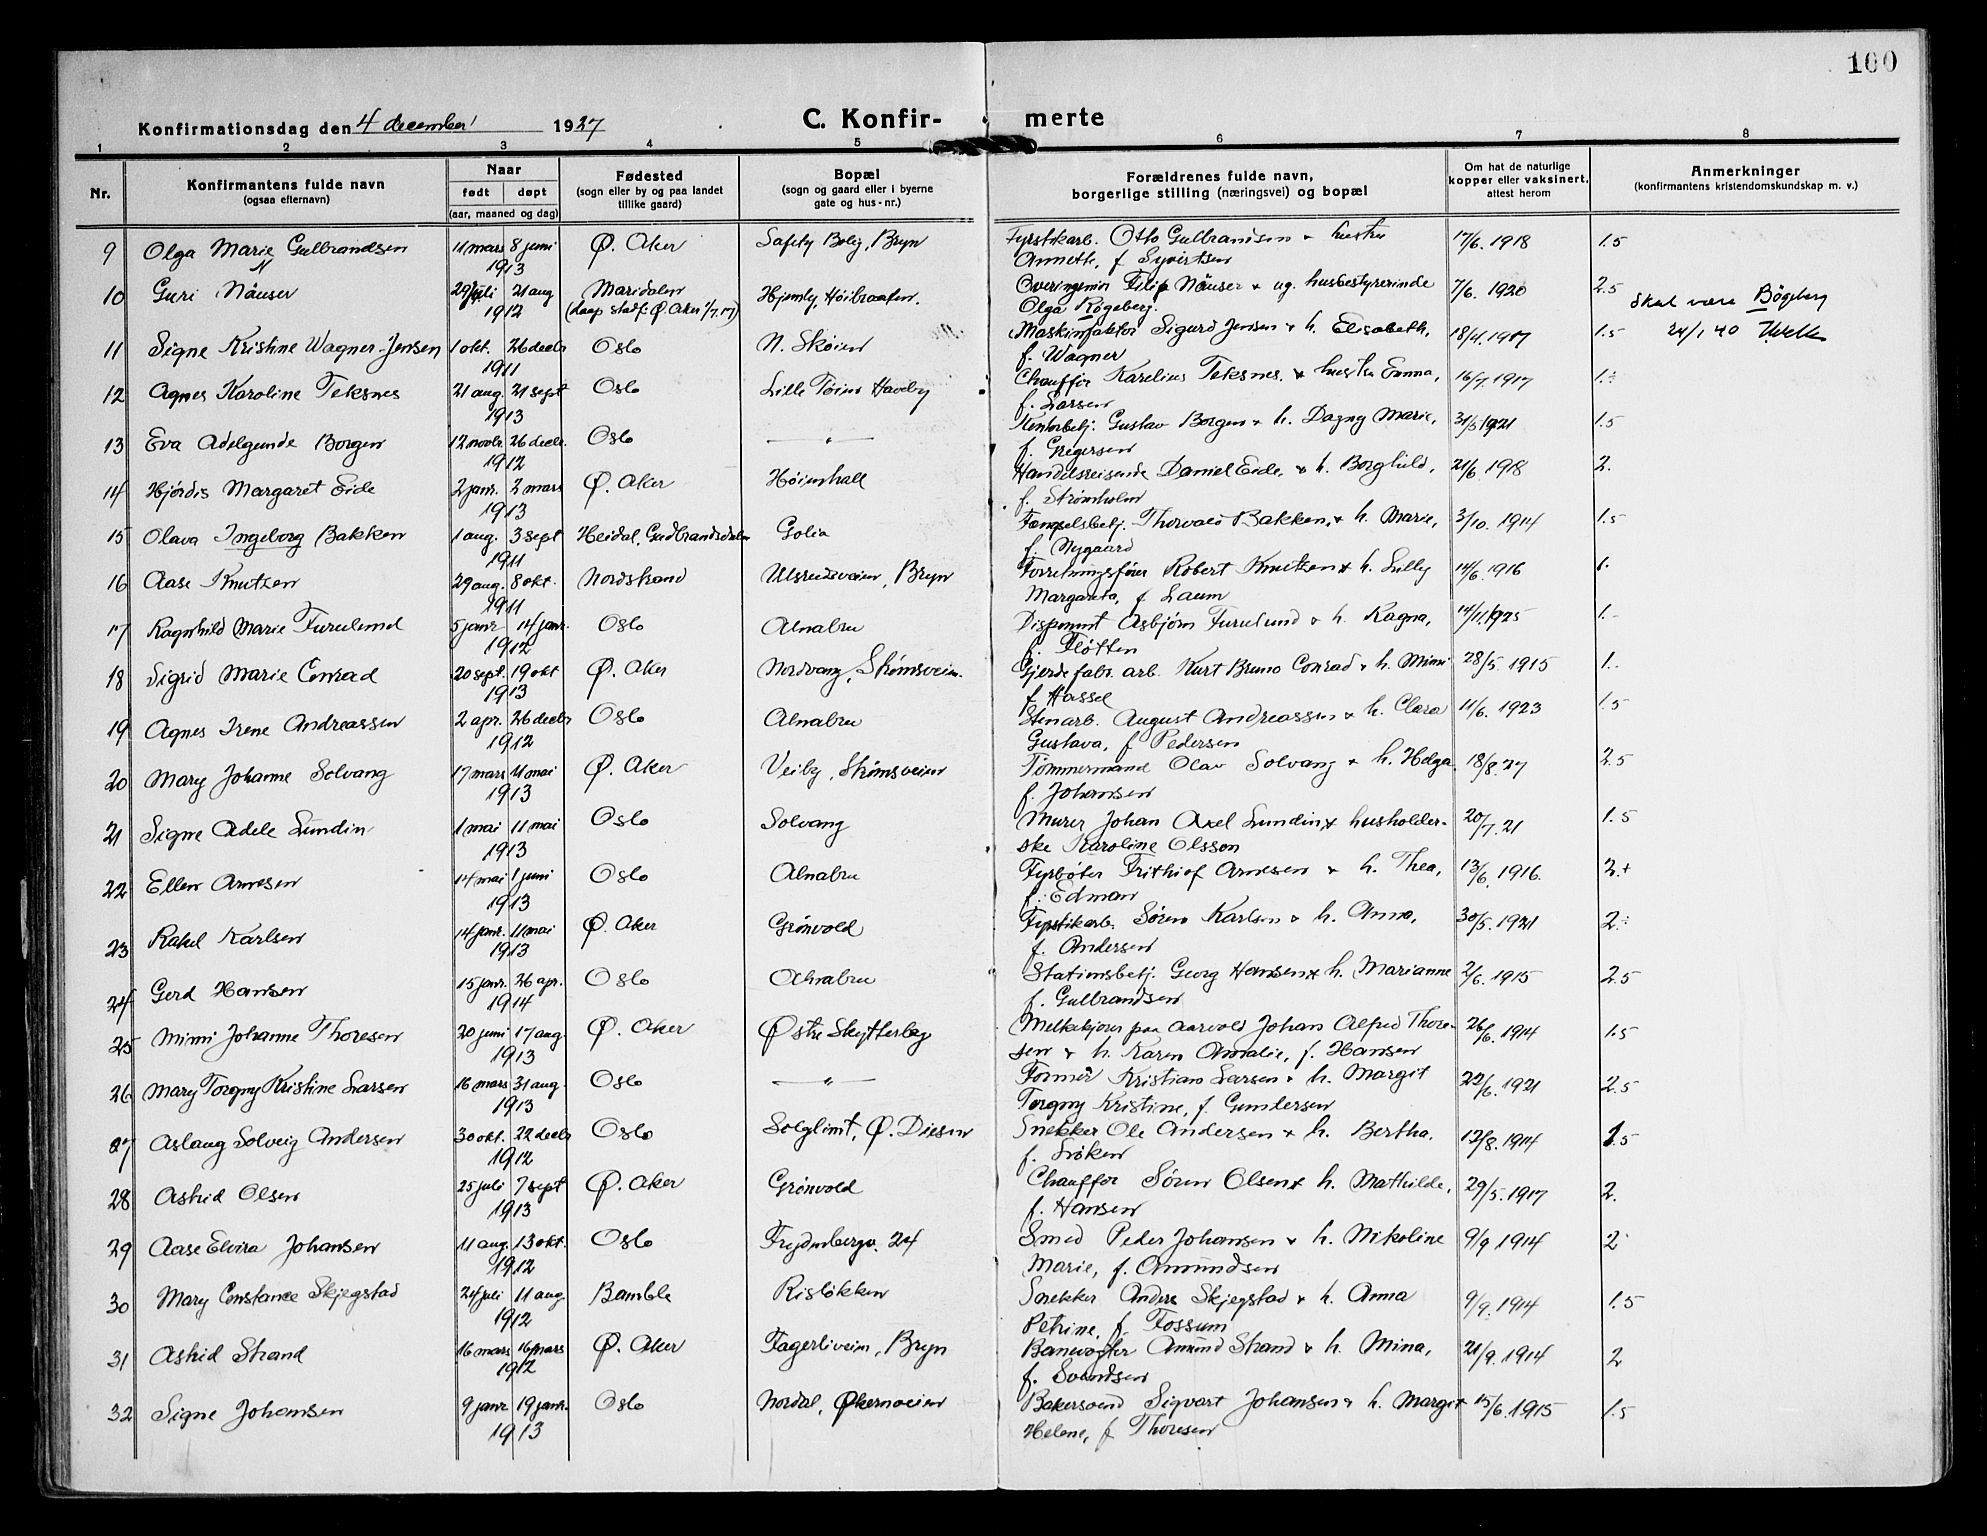 100
Konfirmationsdag den 4 december 1927
C. Konfir- merte
1 2 3 4 5 6 7 8
Nr.
Konfirmantens fulde navn
(ogsaa efternavn)
Naar
født døpt
(aar, maaned og dag)
Fødested
(sogn eller by og paa landet
tillike gaard)
Bopæl
(sogn og gaard eller i byerne
gate og hus-nr.)
Forældrenes fulde navn,
borgerlige stilling (næringsvei) og bopæl
Om hat de naturlige
kopper eller vaksinert,
attest herom
Anmerkninger
(konfirmantens kristendomskundskap m. v.)
9 Olga Marie Gulbrandsen 11 mars 8 juni Ø. Aker Safety Bolig, Bryn Fyrstikarb. Otto Gulbrandsen + hustru 17/6. 1918 1.5
1913 Annette, f Syvertsen
10 Guri Näuser 29 juli 21 aug Maridalen Hjemly, Høibraaten. Overingeniør Filip Näuser + ug. husbestyrerinde 7/6. 1920 2.5 Skal være Bøgeberg
1912 (daap stadf: Ø. Aker 1/7.17) Olga Røgeberg.
24/1 40
11 Signe Kristine Wagner-Jensen 1 okt. 26 decbr Oslo N. Skøien Maskinfaktor Sigurd Jensen + h. Elisabeth, 18/4.1917 1.5
1911 f. Wagner
12 Agnes Karoline Teksnes 21 aug. 21 sept Oslo Lille Tøien Haveby Chauffør Karelius Teksnes. + hustru Emma, 16/7.1917 1.÷
1913 f. Larsen
13 Eva Adelgunde Borgen 12 novbr. 26 decbr. Oslo — " — Kontorbetj. Gustav Borgen + h. Dagny Marie, 31/5 1921 1.5
1912 f. Gregersen
14 Hjørdis Margaret Eide 2 janr. 2 mars Ø. Aker Høienhall Handelsreisende Daniel Eide, + h. Borghild, 21/6. 1918 2.
1913 f. Strømholm
15 Olava Ingeborg Bakken 1 aug. 3 sept Heidal, Gudbrandsdalen Golia Fængselsbetj. Thorvald Bakken, + h. Marie, 3/10. 1914 1.5
1911 f. Nygaard
16 Aase Knutzen 29 aug. 8 okt. Nordstrand Ulsrudveien, Bryn Forretningsfører Robert Knutzen + h. Lilly 14/6. 1916 1.
1911 Margareta, f Laum
17 Ragnhild Marie Furulund 5 janr 14 janr. Oslo Alnabru Disponent Asbjørn Furulund + h. Ragna, 14/11.1925 1.-
1912 f. Fløtten
18 Sigrid Marie Conrad 20 sept. 19 okt Ø. Aker Nordvang, Strømsveien. Gjerdefabr. arb. Kurt Bruno Conrad + h. Mimi 28/5. 1915 1.
1913 f. Hassel
19 Agnes Irene Andreassen 2 apr. 26 decbr Oslo Alnabru Stenarb. August Andreassen + h. Clara 11/6. 1923 1.5
1912 Gustava, f Pedersen
20 Mary Johanne Solvang 17 mars 11 mai Ø. Aker Veiby, Strømsveien Tømmermand Olav Solvang + h. Helga 18/8.27 2.5
1913 f. Johansen
21 Signe Adele Lundin 1 mai 11 mai Oslo Solvang Murer Johan Axel Lundin, + husholder- 20/7.21 1.5
1913 ske Karoline Olsson
22 Ellen Arnesen 14 mai 1 juni Oslo Alnabru Fyrbøter Frithiof Arnesen + h. Thea, 13/6. 1916. 2.+
1913 f. Edman
23 Rakel Karlsen 14 janr. 11 mai Ø. Aker Grönvold Fyrstikarb. Sören Karlsen + h. Anna, 30/5. 1921 2.÷
1913 f. Andersen
24 Gerd Hansen 15 janr. 26 apr. Oslo Alnabru Stationsbetj. Georg Hansen + h. Marianne 2/6. 1915 2.5
1914 f. Gulbrandsen
25 Mimi Johanne Thoresen 20 juni 17 aug. Ø. Aker Østre Skytterlag Melkekjører paa Aarvold Johan Alfred Thore- 26/6. 1914 1.5
1913 sen + h. Karen Amalie, f. Hansen
26 Mary Torgny Kristine Larsen 16 mars 31 aug. Oslo — " — Former Kristian Larsen + h. Margit 22/6. 1921 2.5
1913 Torgny Kristine, f. Gundersen
27 Aslaug Solveig Andersen 30 okt. 22 decbr Oslo Solglimt, Ø. Disen Snekker Ole Andersen + h. Bertha. 12/8. 1914 1.5
1912 f. Löken
28 Astrid Olsen 25 juli 7 sept Ø. Aker Grönvold Chauffør Sören Olsen + h. Mathilde, 29/5. 1917 2.
1913 f. Hansen
29 Aase Elvira Johansen 11 aug. 13 okt. Oslo Frydenbergv. 24 Smed Peder Johansen + h. Nikoline 9/9 1914 2
1912 Marie, f. Amundsen
30 Mary Constance Skjegstad 24 juli 11 aug. Bamble Risløkken Snekker Anders Skjegstad + h. Anna 9/9. 1914 1.5
1912 Petrine, f. Fossum
31 Astrid Strand 16 mars 16 mars Ø. Aker Fagerliveien, Bryn Banevogter Amund Strand + h. Mina, 21/9. 1914 2
1912 f. Svendsen
32 Signe Johansen 9 janr 19 janr. Oslo Nordal, Økernveien Bakersvend Sigvart Johansen + h. Margit 15/6. 1915 1.5
1913 Helene, f Thoresen